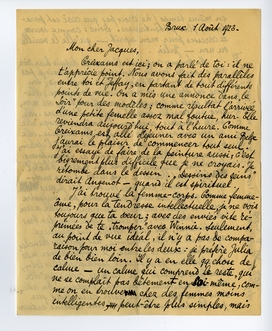 Brux 1 Août 1923.
Mon cher Jacques,
est ici; on a parlé de toi: il ne
t'apprécie point. Nous avons fait des parallèles
entre toi et , en partant de tout différents
points de vue. On a mis une annonce dans le
"Soir" pour des modèles; comme résultat l'arrivée
d'une petite femelle assez mal foutue, pur. Elle
reviendra aujourd'hui, tout à l'heure. Comme
est allé déjeuner avec un ami
j'aurai le plaisir de commencer tout seul.
J'ai essayé de faire de la peinture aussi; c'est
bigrement plus difficile que je ne croyais. Je
retombe dans le dessin. "dessins des seins"
dirait Angenot — quand il est spirituel.
J'ai trouvé la femme-corps. Comme femme-
âme, pour la tendresse intellectuelle, je ne vois
toujours que ta sœur; avec des envies vite ré-
primées de te "tromper" avec Winnie. Seulement,
au point de vue idéal, il n'y a pas de compa-
raison, pour moi entre les deux: je préfère Julia
de bien bien loin. Il y a en elle qq. chose de
calme — un calme qui comprend le reste, qui
ne se complaît pas bêtement en soi-même, com-
me on en trouve chez des femmes moins
intelligentes, peut-être plus simples, mais